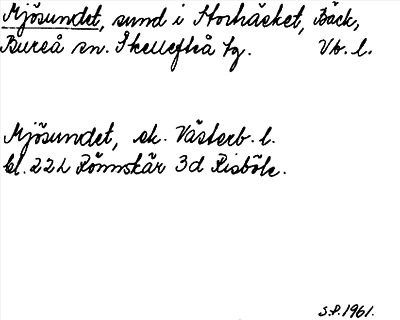 Mjösundet, sund i Storhäsket, Bäck,
Bureå sn. Skellefteå tg. Vb. l.
Mjösundet, ek. Västerb. l.
bl. 22L Rönnskär 3d Risböle.
S.P. 1961.